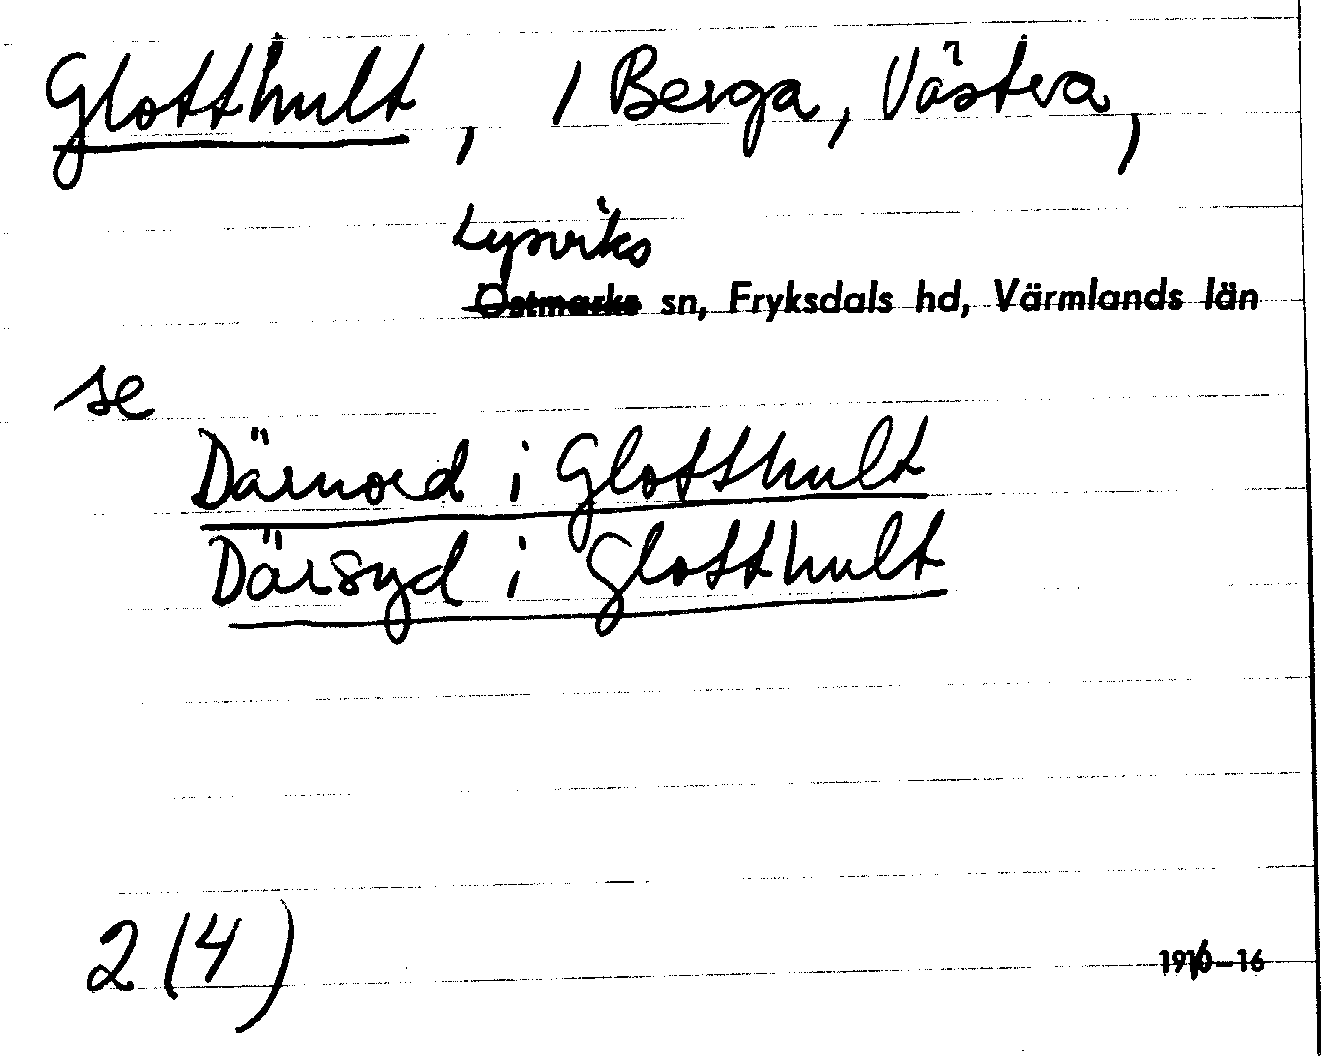 Glotthult, / Berga, Västra,
Lysviks
Östmarks sn, Fryksdals hd, Värmlands län
se
Därnord i Glotthult
Därsyd i Glotthult
2 (4)
1916-16